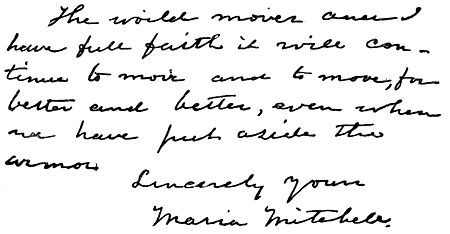 The world moves and I
have full faith it will con-
tinue to move and to move, for
better and better, even when
we have put aside the
armor
Sincerely yours
Maria Mitchell.